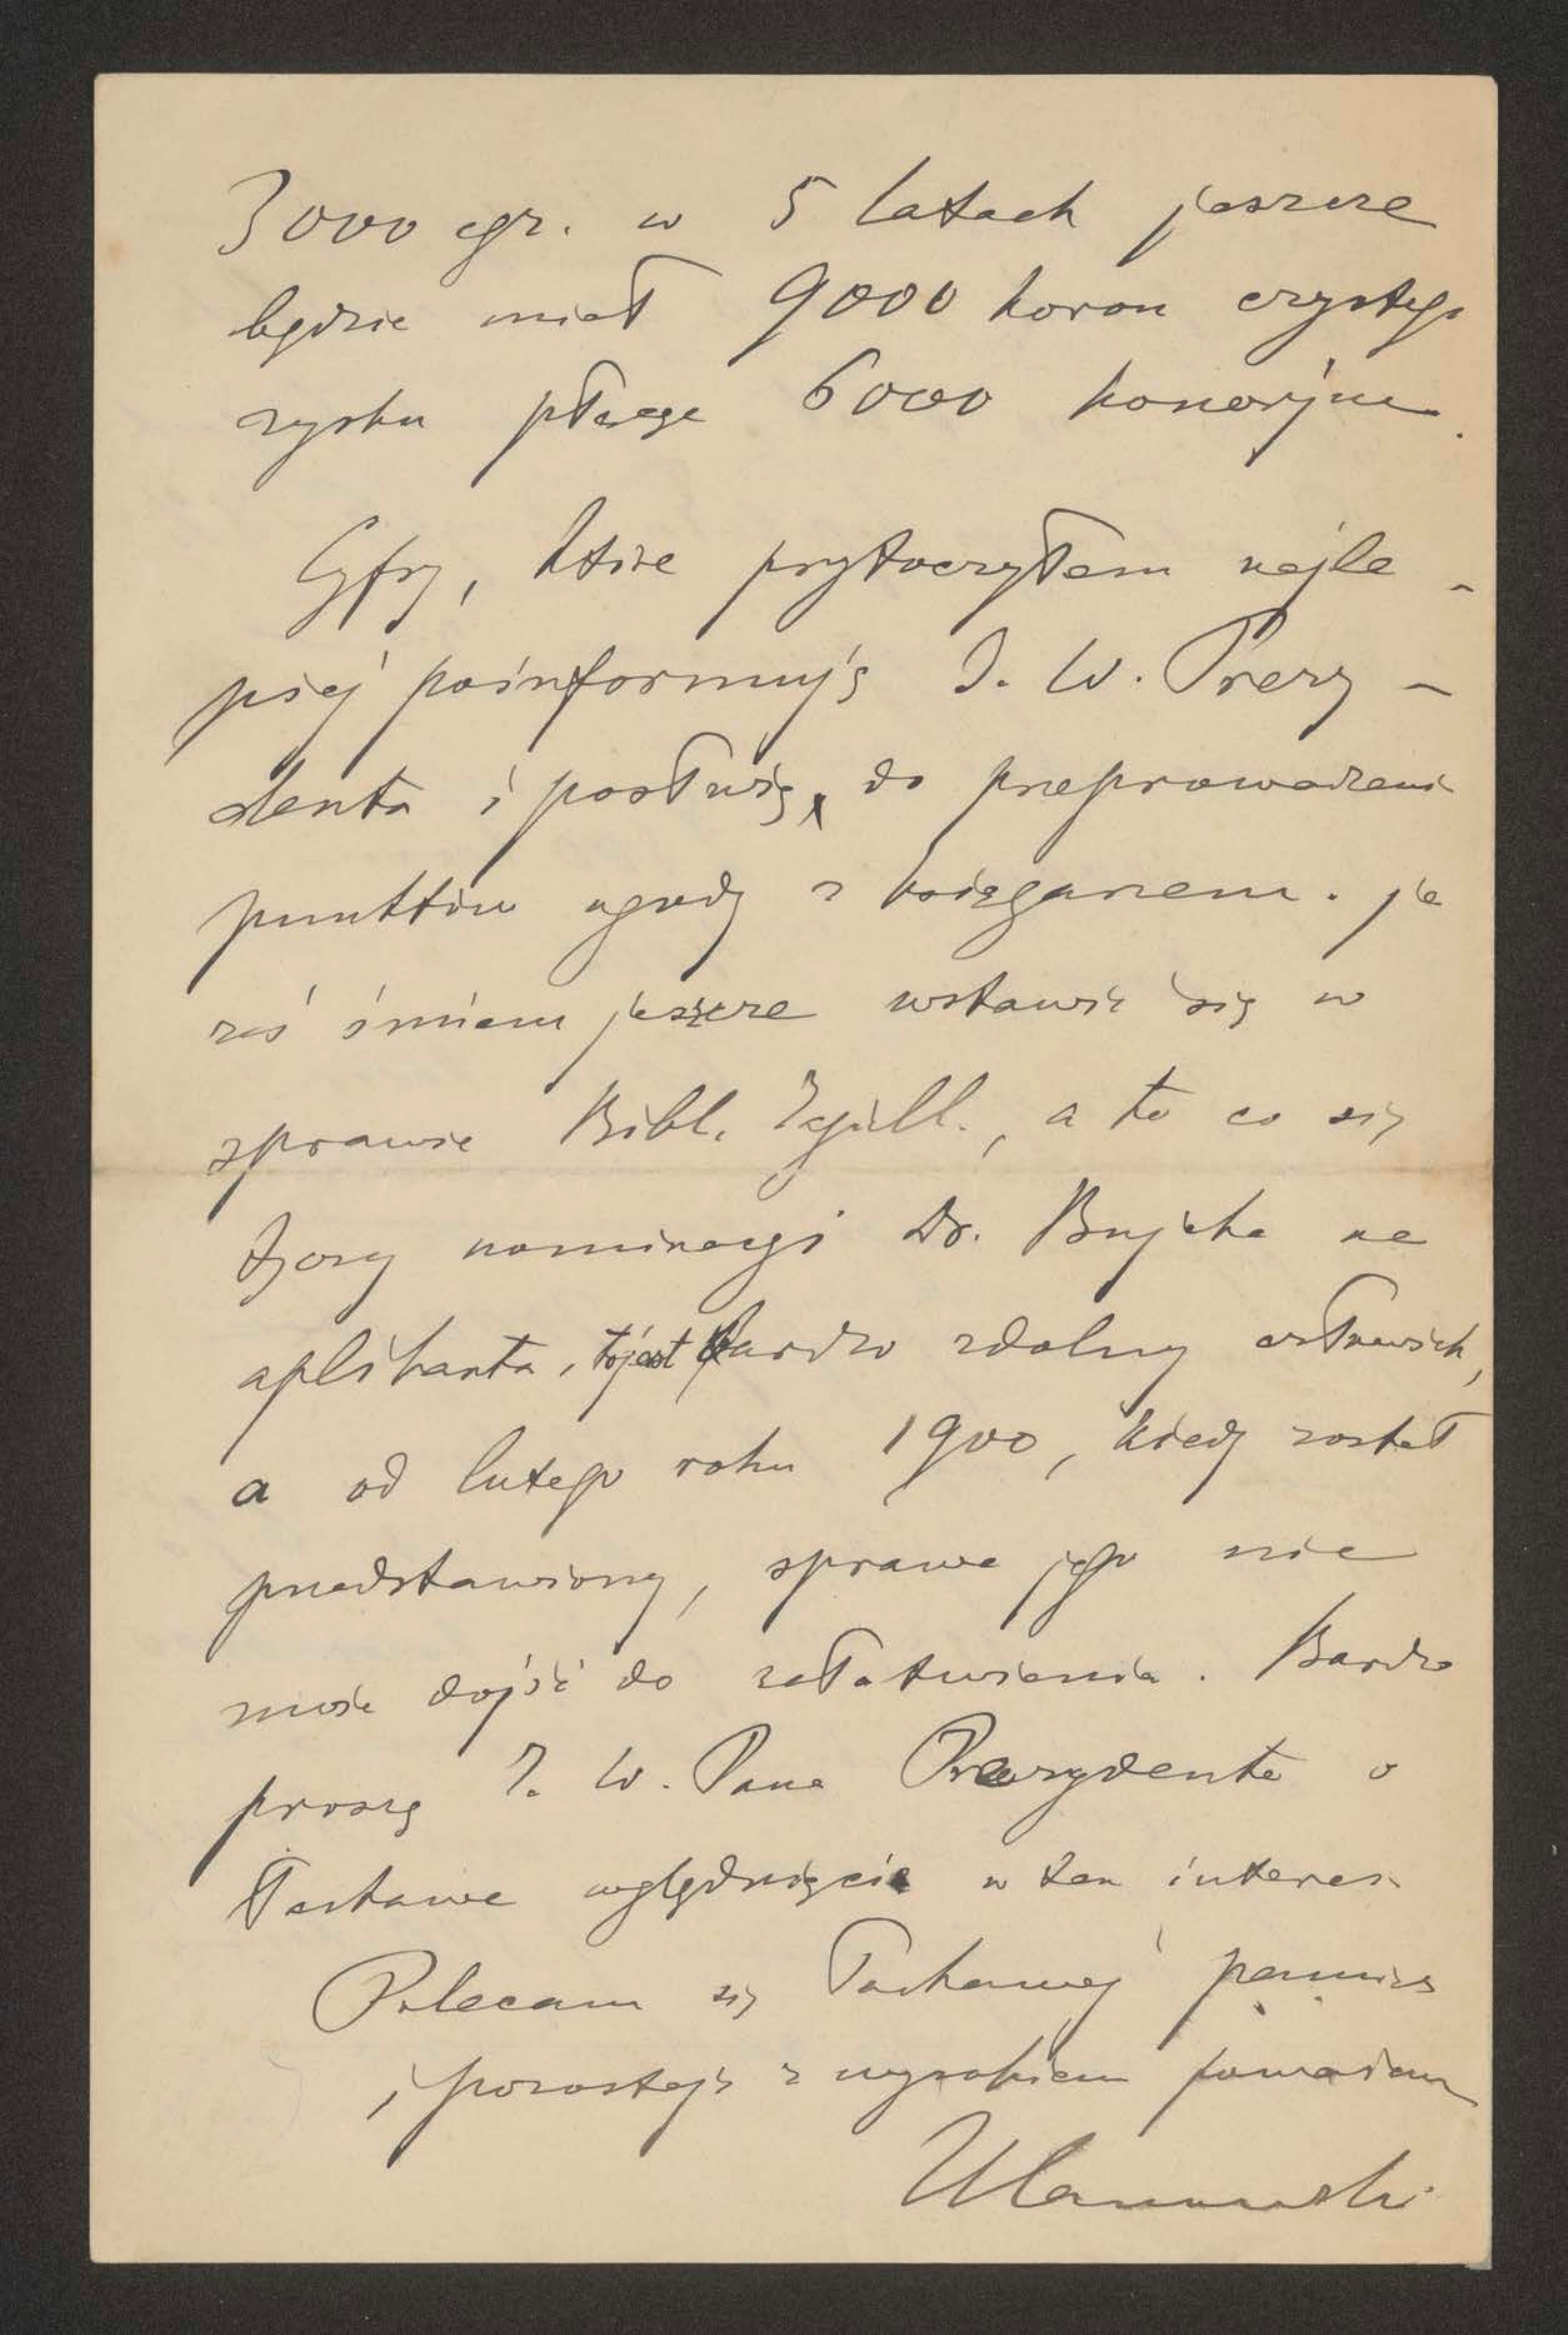 3000 egz. w 5 latach jeszcze
będzie miał 9000 koron czystego
zysku płacąc 6000 honoraryum.
Cyfry, które przytoczyłem najle-
piej poinformują J. W. Prezy-
denta i posłużą, do przeprowadzenia
punktów ugody z księgarzem. Ja
zaś śmiem jeszcze wstawić się w
sprawie Bibl. Jagiell., a to co się
tyczy nominacyi Dr. Bujaka na
aplikanta, to jest bardzo zdolny człowiek,
a od lutego roku 1900, kiedy został
przedstawiony, sprawa jego nie
może dojść do załatwienia. Bardzo
proszę J. W. Pana Prezydenta o
łaskawe wglądnięcie w ten interes.
Polecam się łaskawej pamięci
i pozostaję z wysokiem poważaniem
Ulanowski